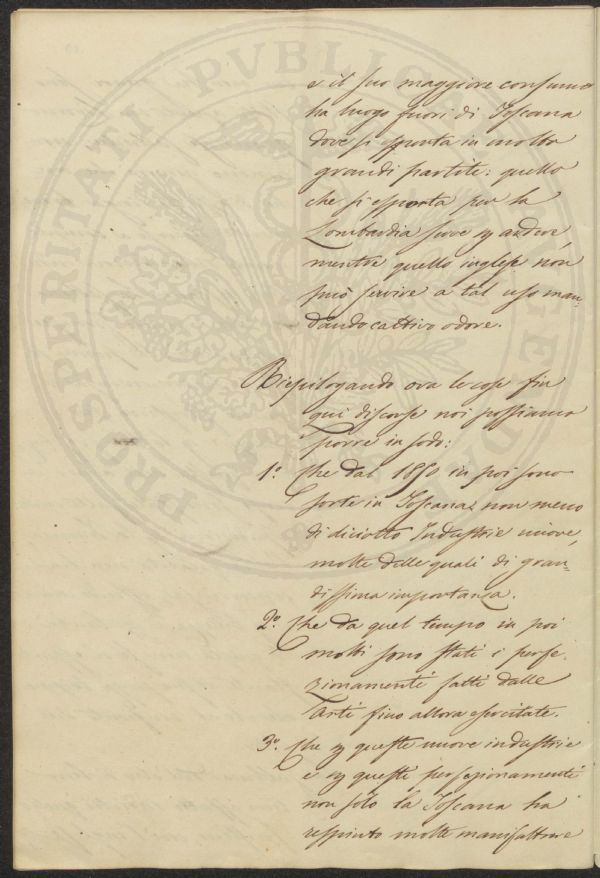 e il suo maggiore consumo
ha luogo fuori di Toscana
dove si esporta in molte
grandi partite: quello
che si esporta per la
Lombardia serve p ardere,
mentre quello inglese non
può servire a tal uso man=
dando cattivo odore.
Riepilogando ora le cose fin
qui discorse noi possiamo
porre in sodo:
1.º Che dal 1850 in poi sono
sorte in Toscana, non meno
di diciotto Industrie nuove,
molte delle quali di gran=
dissima importanza.
2.º Che da quel tempo in poi
molti sono stati i perfe.
zionamenti fatti dalle
Arti fino allora esercitate.
3.º Che p queste nuove industrie
e p questi perfezionamenti
non solo la Toscana ha
respinto molte manifatture
PROSPERITATI PUBLICAE AUGENDAE